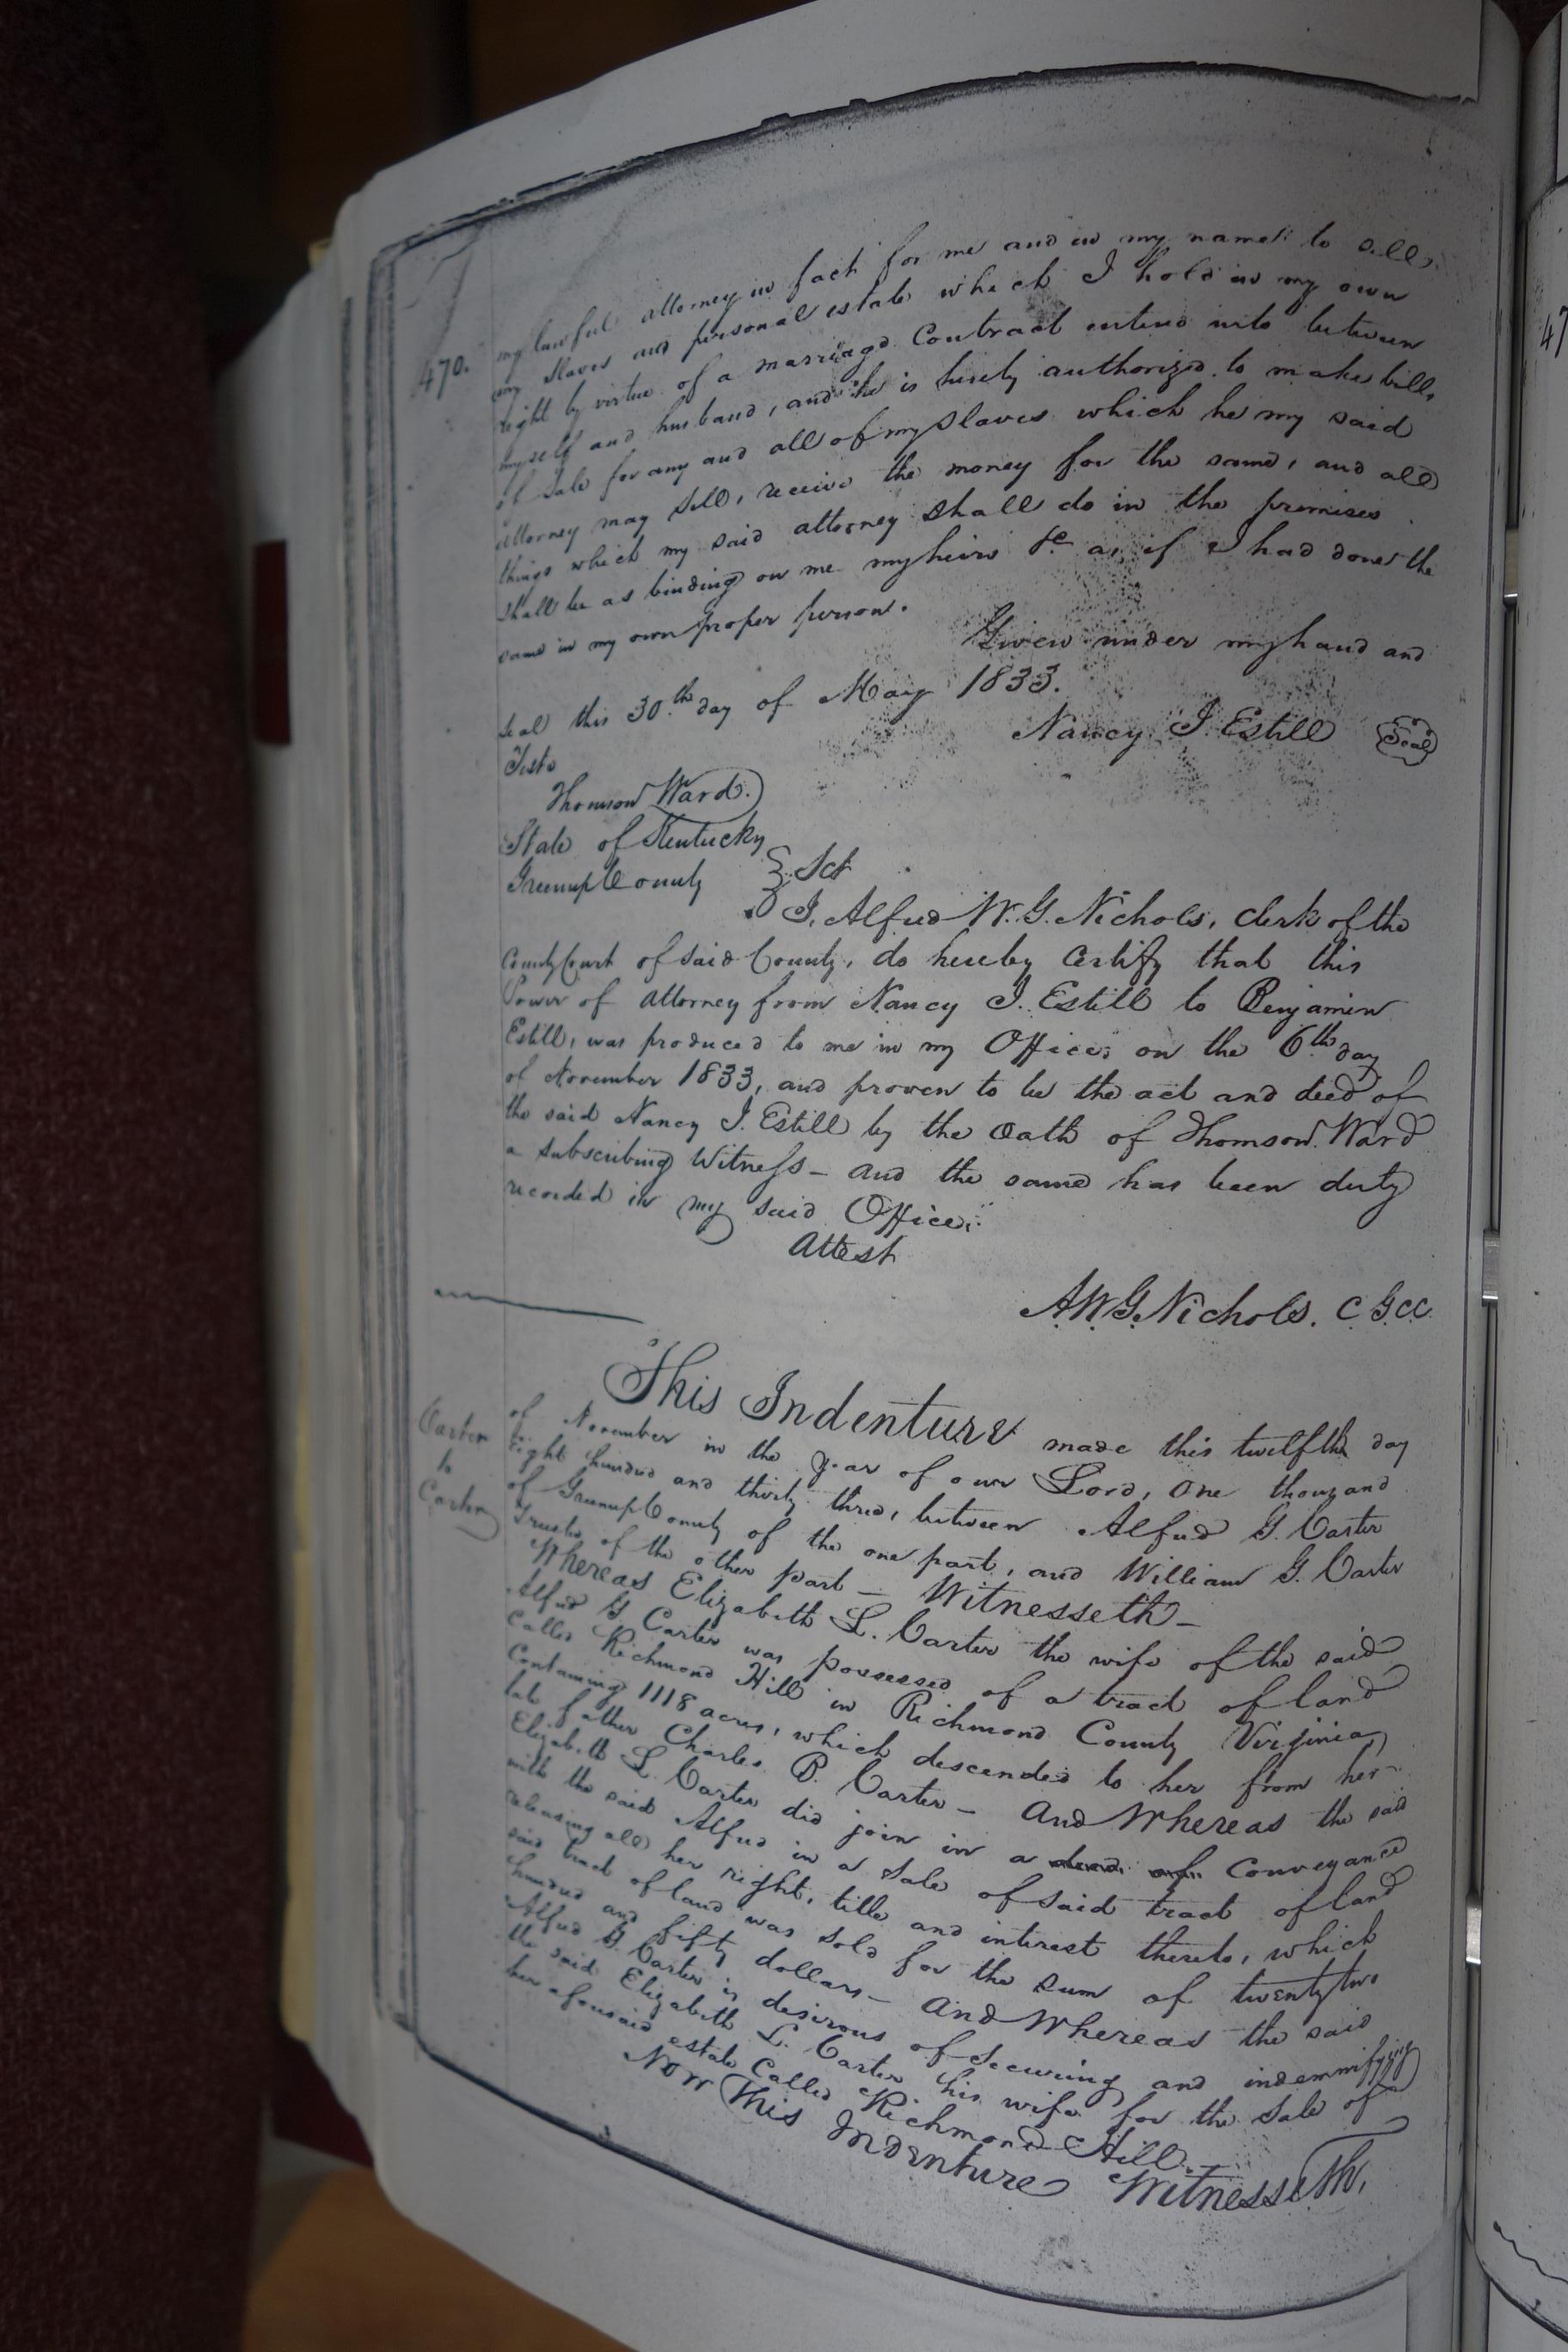 470.
my lawful attorney in fact for me and in my name to sell,
my slaves and personal estate which I hold in my own
right by virtue of a marriage Contract entered into between
myself and husband, and he is hereby authorized to make bills
of Sale for any and all of my Slaves which he my said
attorney may Sell, receive the money for the same, and all
things which my said attorney shall do in the premises
shall be as binding on me my heirs &c as if I had done the
same in my own proper person.
Given under my hand and
seal this 30th day of May 1833.
Nancy J. Estill Seal
Teste
Thomson Ward.
State of Kentucky
Greenup County Sct
I, Alfred W. G. Nichols, clerk of the
County Court of said County, do hereby certify that this
Power of attorney from Nancy J. Estill to Benjamin
Estill, was produced to me in my Office, on the 6th day
of November 1833, and proven to be the act and deed of
the said Nancy J. Estill by the Oath of Thomson Ward
a subscribing Witness - and the same has been duly
recorded in my said Office.
Attest
A.W.G. Nichols. C G C C
Carter
to
Carter
This Indenture made this twelfth day
of November in the year of our Lord, One thousand
Eight hundred and thirty three, between Alfred G. Carter
of Greenup County of the one part, and William G. Carter
Trustee of the other part - Witnesseth -
Whereas Elizabeth L. Carter the wife of the said
Alfred G Carter was possessed of a tract of land
Called Richmond Hill in Richmond County Virginia
Containing 1118 acres, which descended to her from her
late father Charles B. Carter - And Whereas the said
Elizabeth L. Carter did join in a deed of Conveyance
with the said Alfred in a Sale of said tract of land
releasing all her right, title and interest thereto, which
said tract of land was sold for the sum of twenty two
hundred and fifty dollars - And Whereas the said
Alfred G. Carter is desirous of securing and indemnifying
the said Elizabeth L. Carter his wife for the Sale of
her aforesaid estate Called Richmond Hill.
Now This Indenture Witnesseth,
47